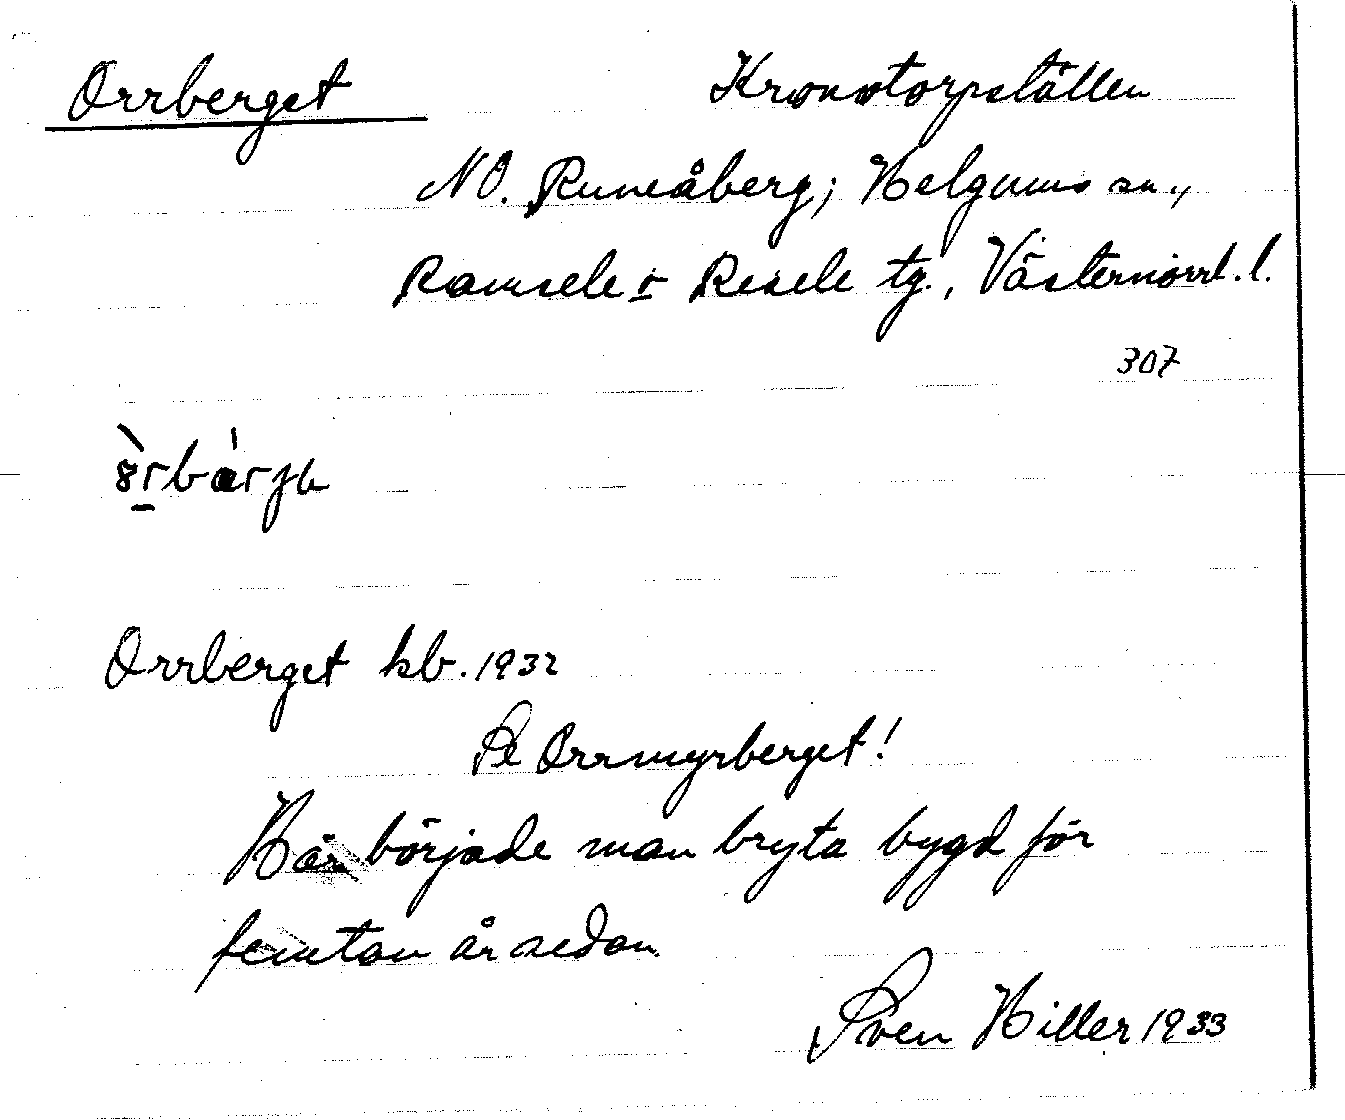 Orrberget Kronotorpställen
NO. Runsåberg; Helgums sn.,
Ramsele o Resele tg., Västernorrl. l.
307
Orrberget kb. 1932
Se Orrmyrberget!
Här började man bryta bygd för
femton år sedan.
Sven Hiller 1933